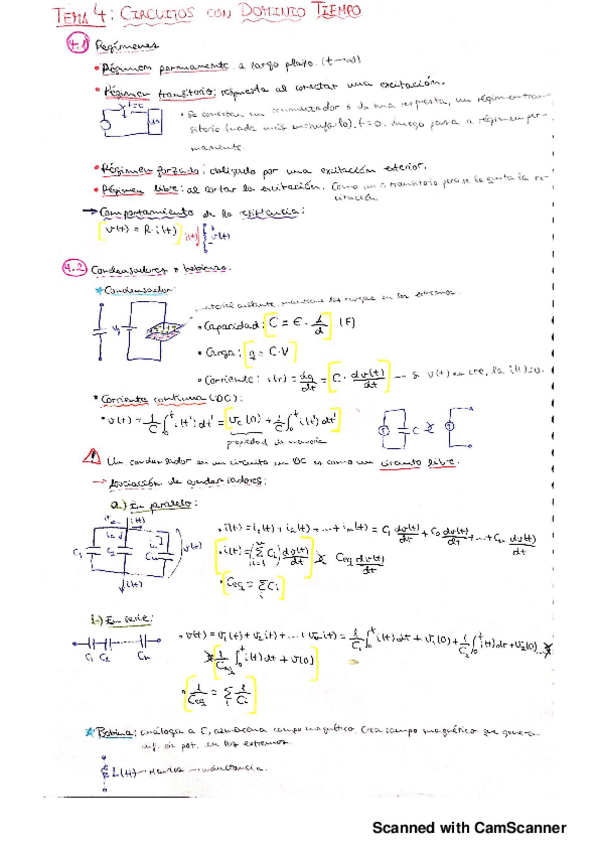 TEMA 4: CIRCUITOS CON DOMINIO TIEMPO
4.1 Regímenes
• Régimen permanente: a largo plazo. (t→∞)
• Régimen transitorio: respuesta al conectar una excitación.
t=0
• Se conectar un conmutador da una respuesta, un régimen tran-
sitorio (nada más enchufarlo). t=0. Luego pasa a régimen per-
manente.
• Régimen forzado: obligado por una excitación exterior.
• Régimen libre: al cortar la excitación. Como un transitorio pero se le quita la ex-
citación.
→ Comportamiento de la resistencia:
v(t) = R·i(t) i(t) v(t)
4.2 Condensadores y bobinas.
* Condensador:
aislante, mantiene las cargas en los extremos.
• Capacidad: C = ε · A/d (F)
• Carga: q = C·V
• Corriente: i(t) = dq/dt = C · dv(t)/dt → Si v(t) es cte, la i(t)=0.
• Corriente continua (DC):
• v(t) = 1/C ∫₀ᵗ i(t') dt' = Vc(0) + 1/C ∫₀ᵗ i(t') dt'
propiedad de memoria
C
⚠ Un condensador en un circuito en DC es como un circuito libre.
→ Asociación de condensadores:
a) En paralelo:
i(t)
C₁ C₂ Cn v(t)
i(t)
• i(t) = i₁(t) + i₂(t) + ... + in(t) = C₁ dv(t)/dt + C₂ dv(t)/dt + ... + Cn dv(t)/dt
• i(t) = (Σ Ci) dv(t)/dt Ceq dv(t)/dt
• Ceq = Σ Ci
b) En serie:
C₁ C₂ Cn
• v(t) = v₁(t) + v₂(t) + ... + vn(t) = 1/C₁ ∫₀ᵗ i(t) dt + v₁(0) + 1/C₂ ∫₀ᵗ i(t) dt + v₂(0) ...
1/Ceq ∫₀ᵗ i(t) dt + v(0)
• 1/Ceq = Σ 1/Ci
* Bobina: análoga a C, almacena campo magnético. Crea campo magnético que genera
dif. de pot. en los extremos.
L(H) → Henrios → inductancia.
Scanned with CamScanner